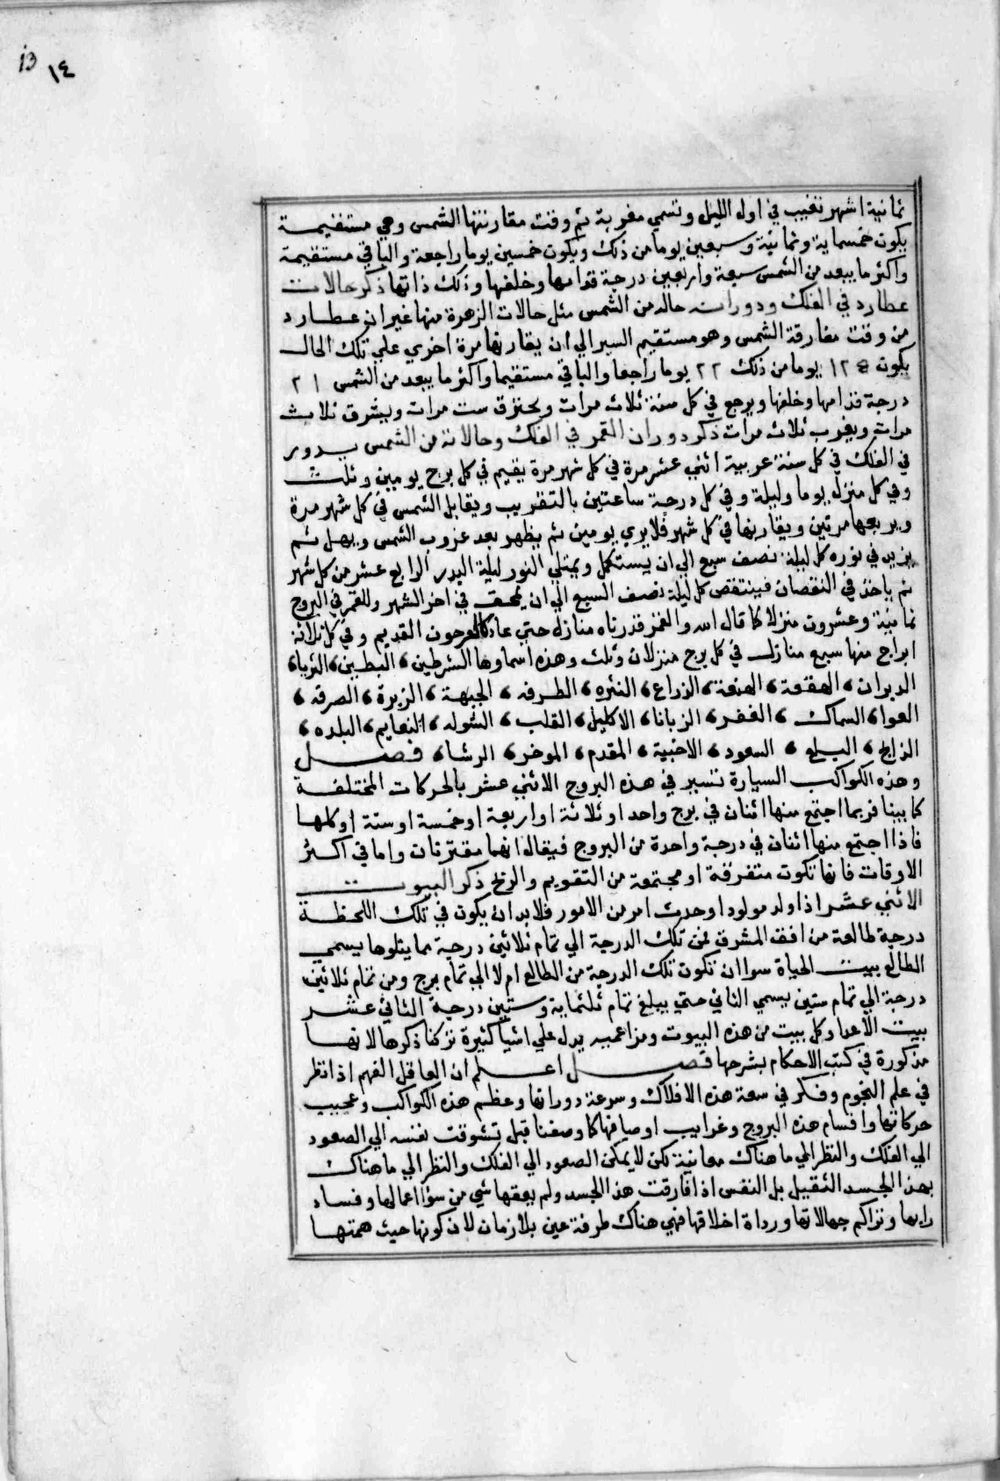 13 ١٤
ثمانية اشهر تغيب في اول الليل وتسمي مغربة ثم وقت مقارنتها الشمس وهي مستقيمة
يكون خمسماية وثمانية وسبعين يوما من ذلك ويكون خمسين يوما راجعة والباقي مستقيمة
واكثر ما يبعد من الشمس سبعة واربعين درجة قدامها وخلفها وذلك ذاتها ذكر حالات
عطارد في الفلك ودورانه حاله من الشمس مثل حالات الزهرة منها غير ان عطارد
من وقت مفارقة الشمس وهو مستقيم السير الي ان يقارنها مرة اخري علي تلك الحال
يكون ١٢٤ يوما من ذلك ٢٢ يوما راجعا والباقي مستقيما واكثر ما يبعد من الشمس ٢١
درجة قدامها وخلفها ويرجع في كل سنة ثلاث مرات ويحترق ست مرات ويشرق ثلاث
مرات ويغرب ثلاث مرات ذكر دوران القمر في الفلك وحالاته من الشمس يدور
في الفلك في كل سنة عربية اثني عشر مرة في كل شهر مرة يقيم في كل برج يومين وثلث
وفي كل منزل يوما وليلة وفي كل درجة ساعتين بالتقريب ويقابل الشمس في كل شهر مرة
ويربعها مرتين ويقارنها في كل شهر فلا يري يومين ثم يظهر بعد غروب الشمس ويهل ثم
يزيد في نوره كل ليلة نصف سبع الي ان يستكمل ويمتلي النور ليلة البدر الرابع عشر من كل شهر
ثم ياخذ في النقصان فينتقص كل ليلة نصف السبع الي ان يمحق في اخر الشهر وللقمر في البروج
ثمانية وعشرون منزلا كما قال الله والقمر قدرناه منازل حتي عاد كالعرجون القديم وفي كل ثلاثة
ابراج منها سبع منازل في كل برج منزلان وثلث وهذه اسماوها الشرطين، البطين، الثريا،
الدبران، الهقعة، الهنعة، الذراع، النثره، الطرفه، الجبهة، الزبرة، الصرفه،
العوا، السماك، الغفر، الزبانا، الاكليل، القلب، الشوله، النعايم، البلده،
الذابح، البلع، السعود، الاخبية، المقدم، الموخر، الرشا، فصل
وهذه الكواكب السيارة تسير في هذه البروج الاثني عشر بالحركات المختلفة
كما بينا فربما اجتمع منها اثنان في برج واحد او ثلاثة او اربعة او خمسة او ستة او كلها
فاذا اجتمع منها اثنان في درجة واحدة من البروج فيقال انهما مقترنان واما في اكثر
الاوقات فانها تكون متفرقة او مجتمعة من التقويم والزيج ذكر البيوت
الاثني عشر اذا ولد مولود او حدث امر من الامور فلا بد ان يكون في تلك اللحظة
درجة طالعة من افق المشرق فمن تلك الدرجة الي تمام ثلاثين درجة مما يتلوها يسمي
الطالع بيت الحياة سوا ان تكون تلك الدرجة من الطالع ام لا الي تمام برج ومن تمام ثلاثين
درجة الي تمام ستين يسمي الثاني حتي يبلغ تمام ثلثماية وستين درجة الثاني عشر
بيت الاعدا وكل بيت من هذه البيوت يدل علي اشيا كثيرة تركنا ذكرها لانها
مذكورة في كتب الاحكام بشرحها فصل اعلم ان العاقل الفهم اذا نظر
في علم النجوم وفكر في سعة هذه الافلاك وسرعة دورانها وعظم هذه الكواكب وعجيب
حركاتها واقسام هذه البروج وغرايب اوصافها كما وصفنا قبل تشوقت نفسه الي الصعود
الي الفلك والنظر الي ما هناك معاينة لكن لا يمكن الصعود الي الفلك والنظر الي ما هناك
بهذا الجسد الثقيل بل النفس اذا فارقت هذا الجسد ولم يعقها شي من سوا اعمالها وفساد
رايها وتراكم جهالاتها ورداة اخلاقها فهي هناك طرفة عين بلا زمان لان كونها حيث همتها